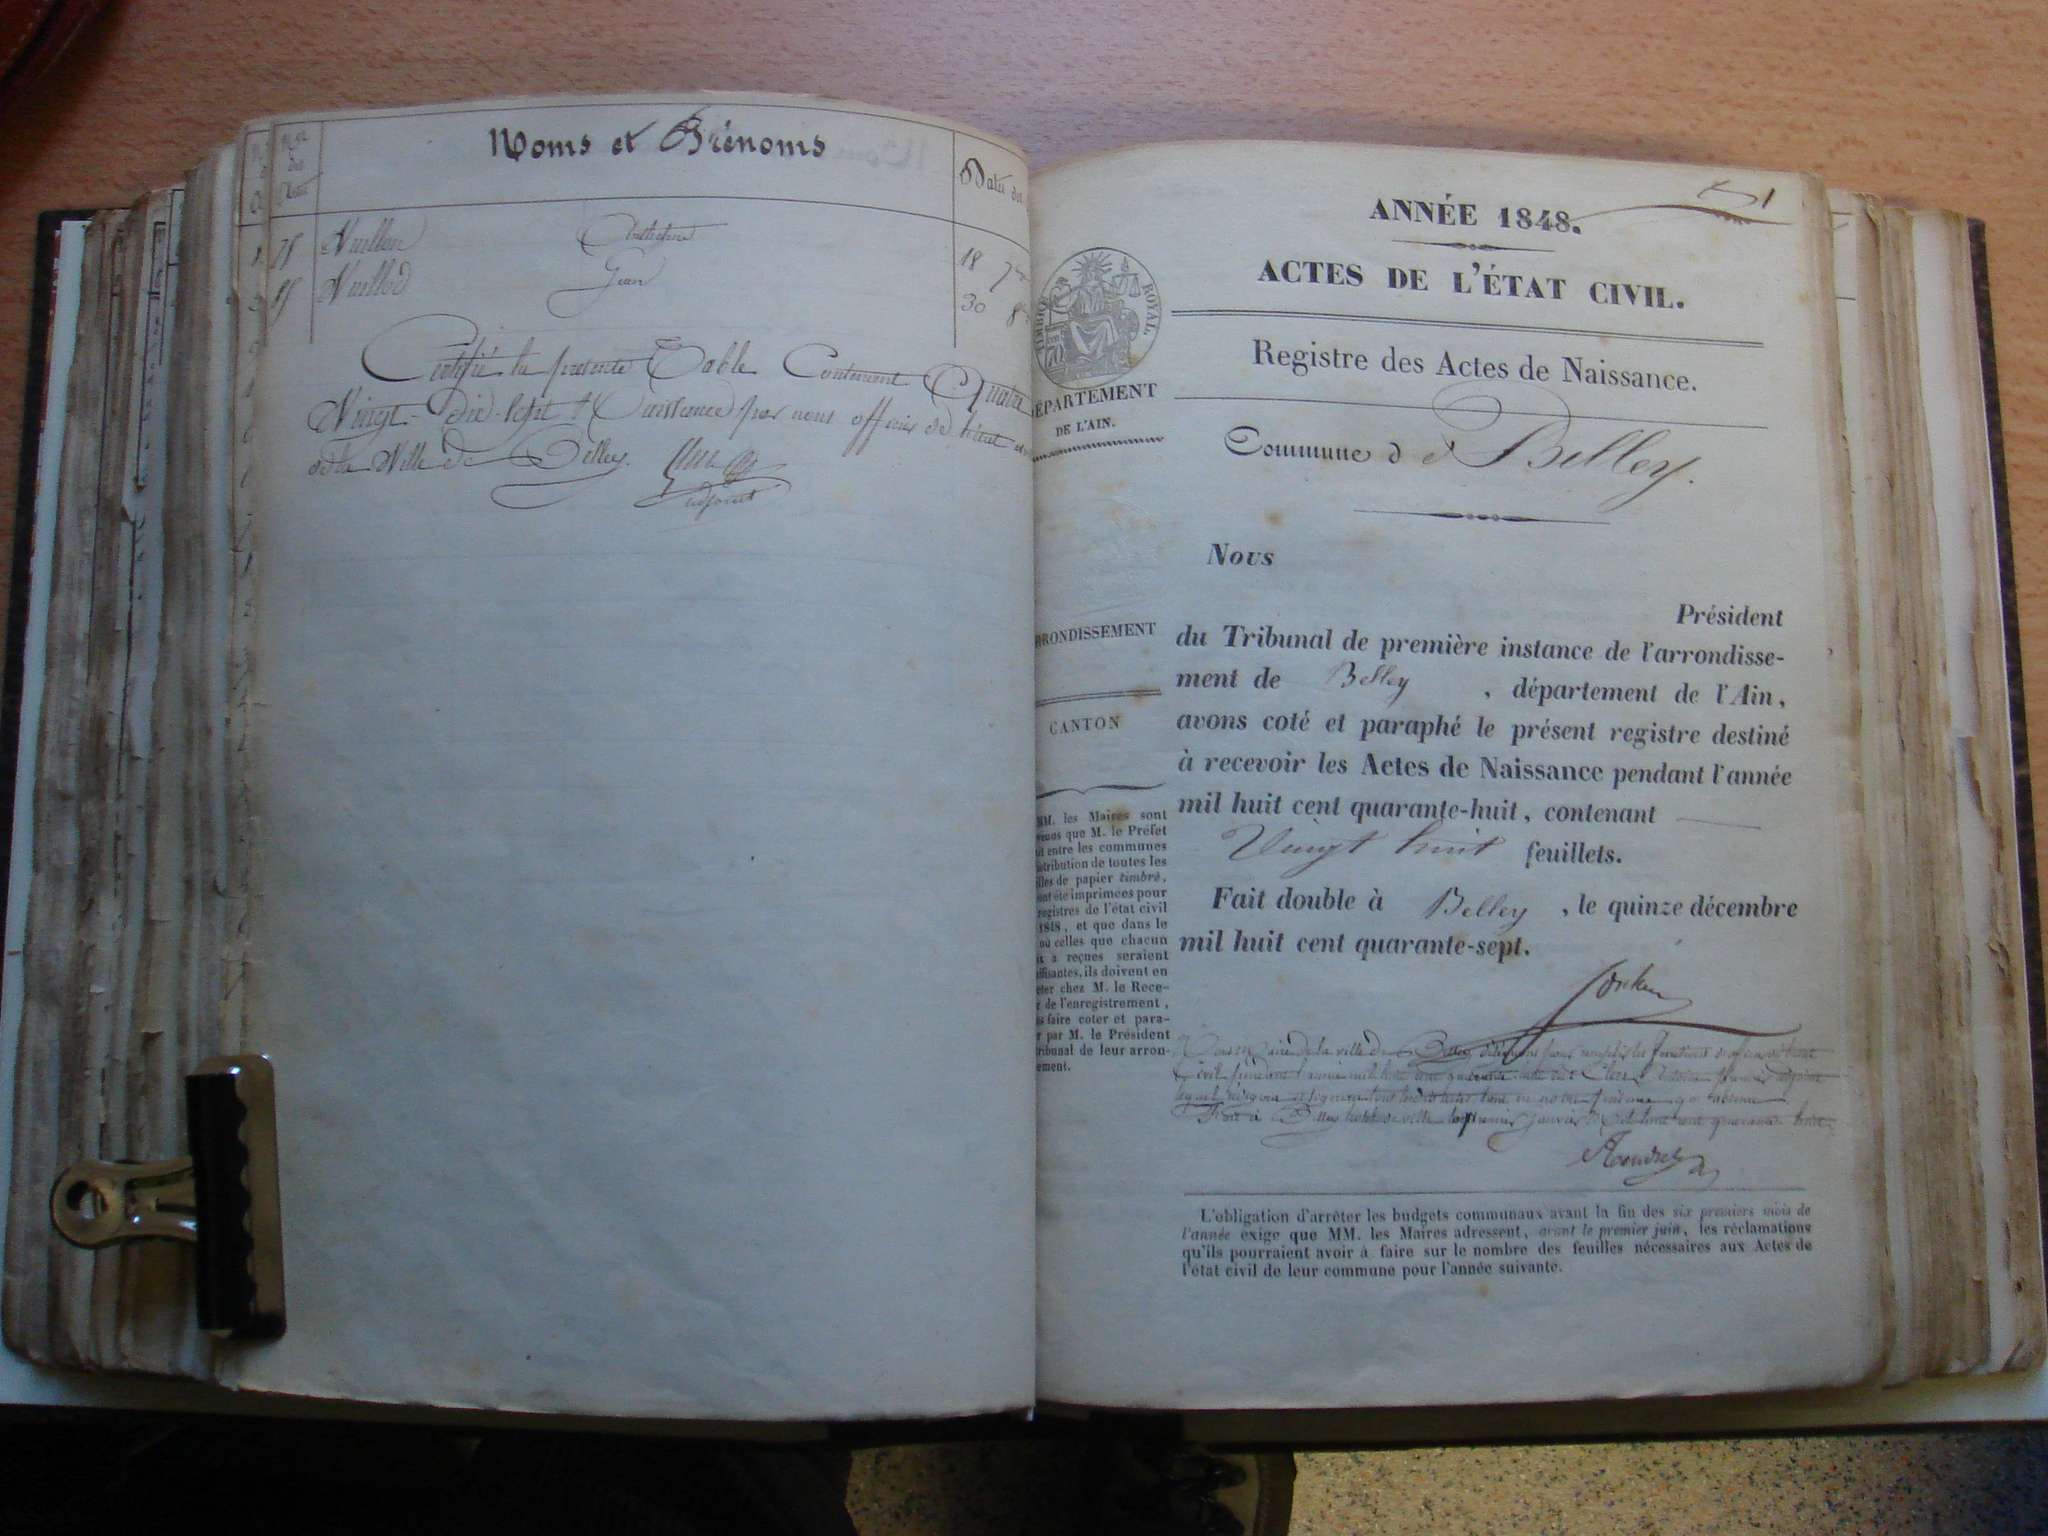 Noms et Prénoms
Dates des
18 7bre
Jean
30 8
Certifié la présente Table Contenant Quatre
Vingt-dix-sept Naissance par nous officier de l'état
de la Ville de Belley.
adjoint
1
ANNÉE 1848.
ACTES DE L'ÉTAT CIVIL.
TIMBRE ROYAL.
Registre des Actes de Naissance.
DÉPARTEMENT
DE L'AIN.
Commune d e Belley.
Nous
Président
du Tribunal de première instance de l'arrondisse-
ment de Belley, département de l'Ain,
avons coté et paraphé le présent registre destiné
à recevoir les Actes de Naissance pendant l'année
mil huit cent quarante-huit, contenant
Vingt huit feuillets.
Fait double à Belley, le quinze décembre
mil huit cent quarante-sept.
RRONDISSEMENT
CANTON
MM. les Maires sont
venus que M. le Préfet
it entre les communes
stribution de toutes les
illes de papier timbré,
ont été imprimées pour
registres de l'état civil
1848, et que dans le
où celles que chacun
ix a reçues seraient
ffisantes, ils doivent en
eter chez M. le Rece-
r de l'enregistrement,
s faire coter et para-
r par M. le Président
ribunal de leur arron-
ement.
Nous Maire de la ville de Belley pour remplir les fonctions d'officier de l'état
civil pendant l'année mil huit cent quarante huit
Fait à Belley hôtel de ville le premier janvier mil huit cent quarante huit
L'obligation d'arrêter les budgets communaux avant la fin des six premiers mois de
l'année exige que MM. les Maires adressent, avant le premier juin, les réclamations
qu'ils pourraient avoir à faire sur le nombre des feuilles nécessaires aux Actes de
l'état civil de leur commune pour l'année suivante.